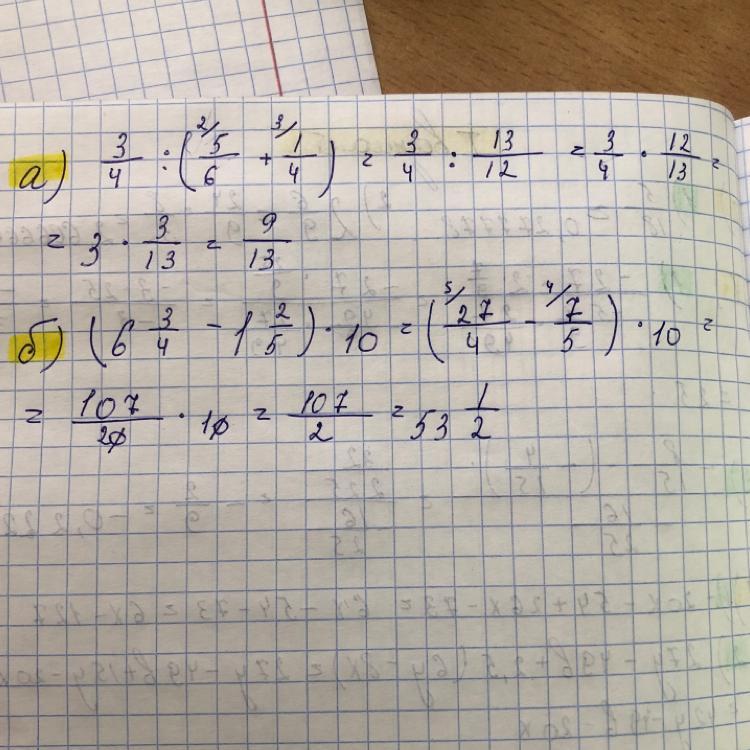 а) 3/4 : (2/ 5/6 + 3/ 1/4) = 3/4 : 13/12 = 3/4 · 12/13 =
= 3 · 3/13 = 9/13
б) (6 3/4 - 1 2/5) · 10 = (5/ 27/4 - 4/ 7/5) · 10 =
= 107/20 · 10 = 107/2 = 53 1/2